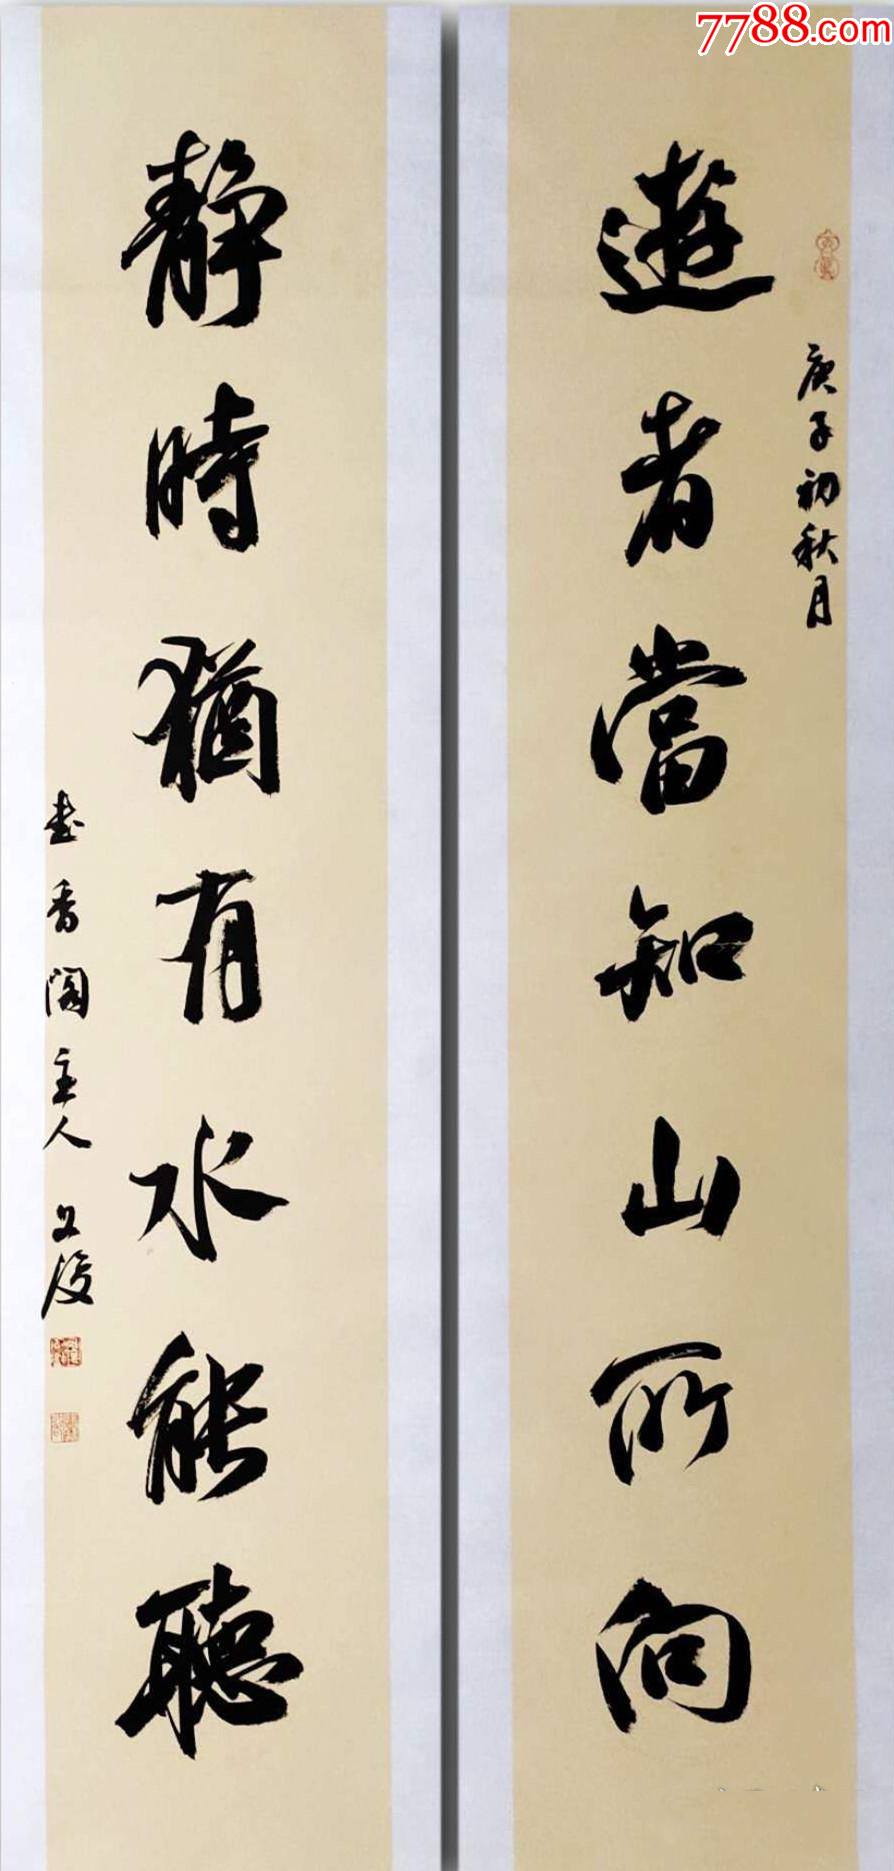 7788.com
庚子初秋月
遊者當知山所向
靜時猶有水能聽
書香閣主人